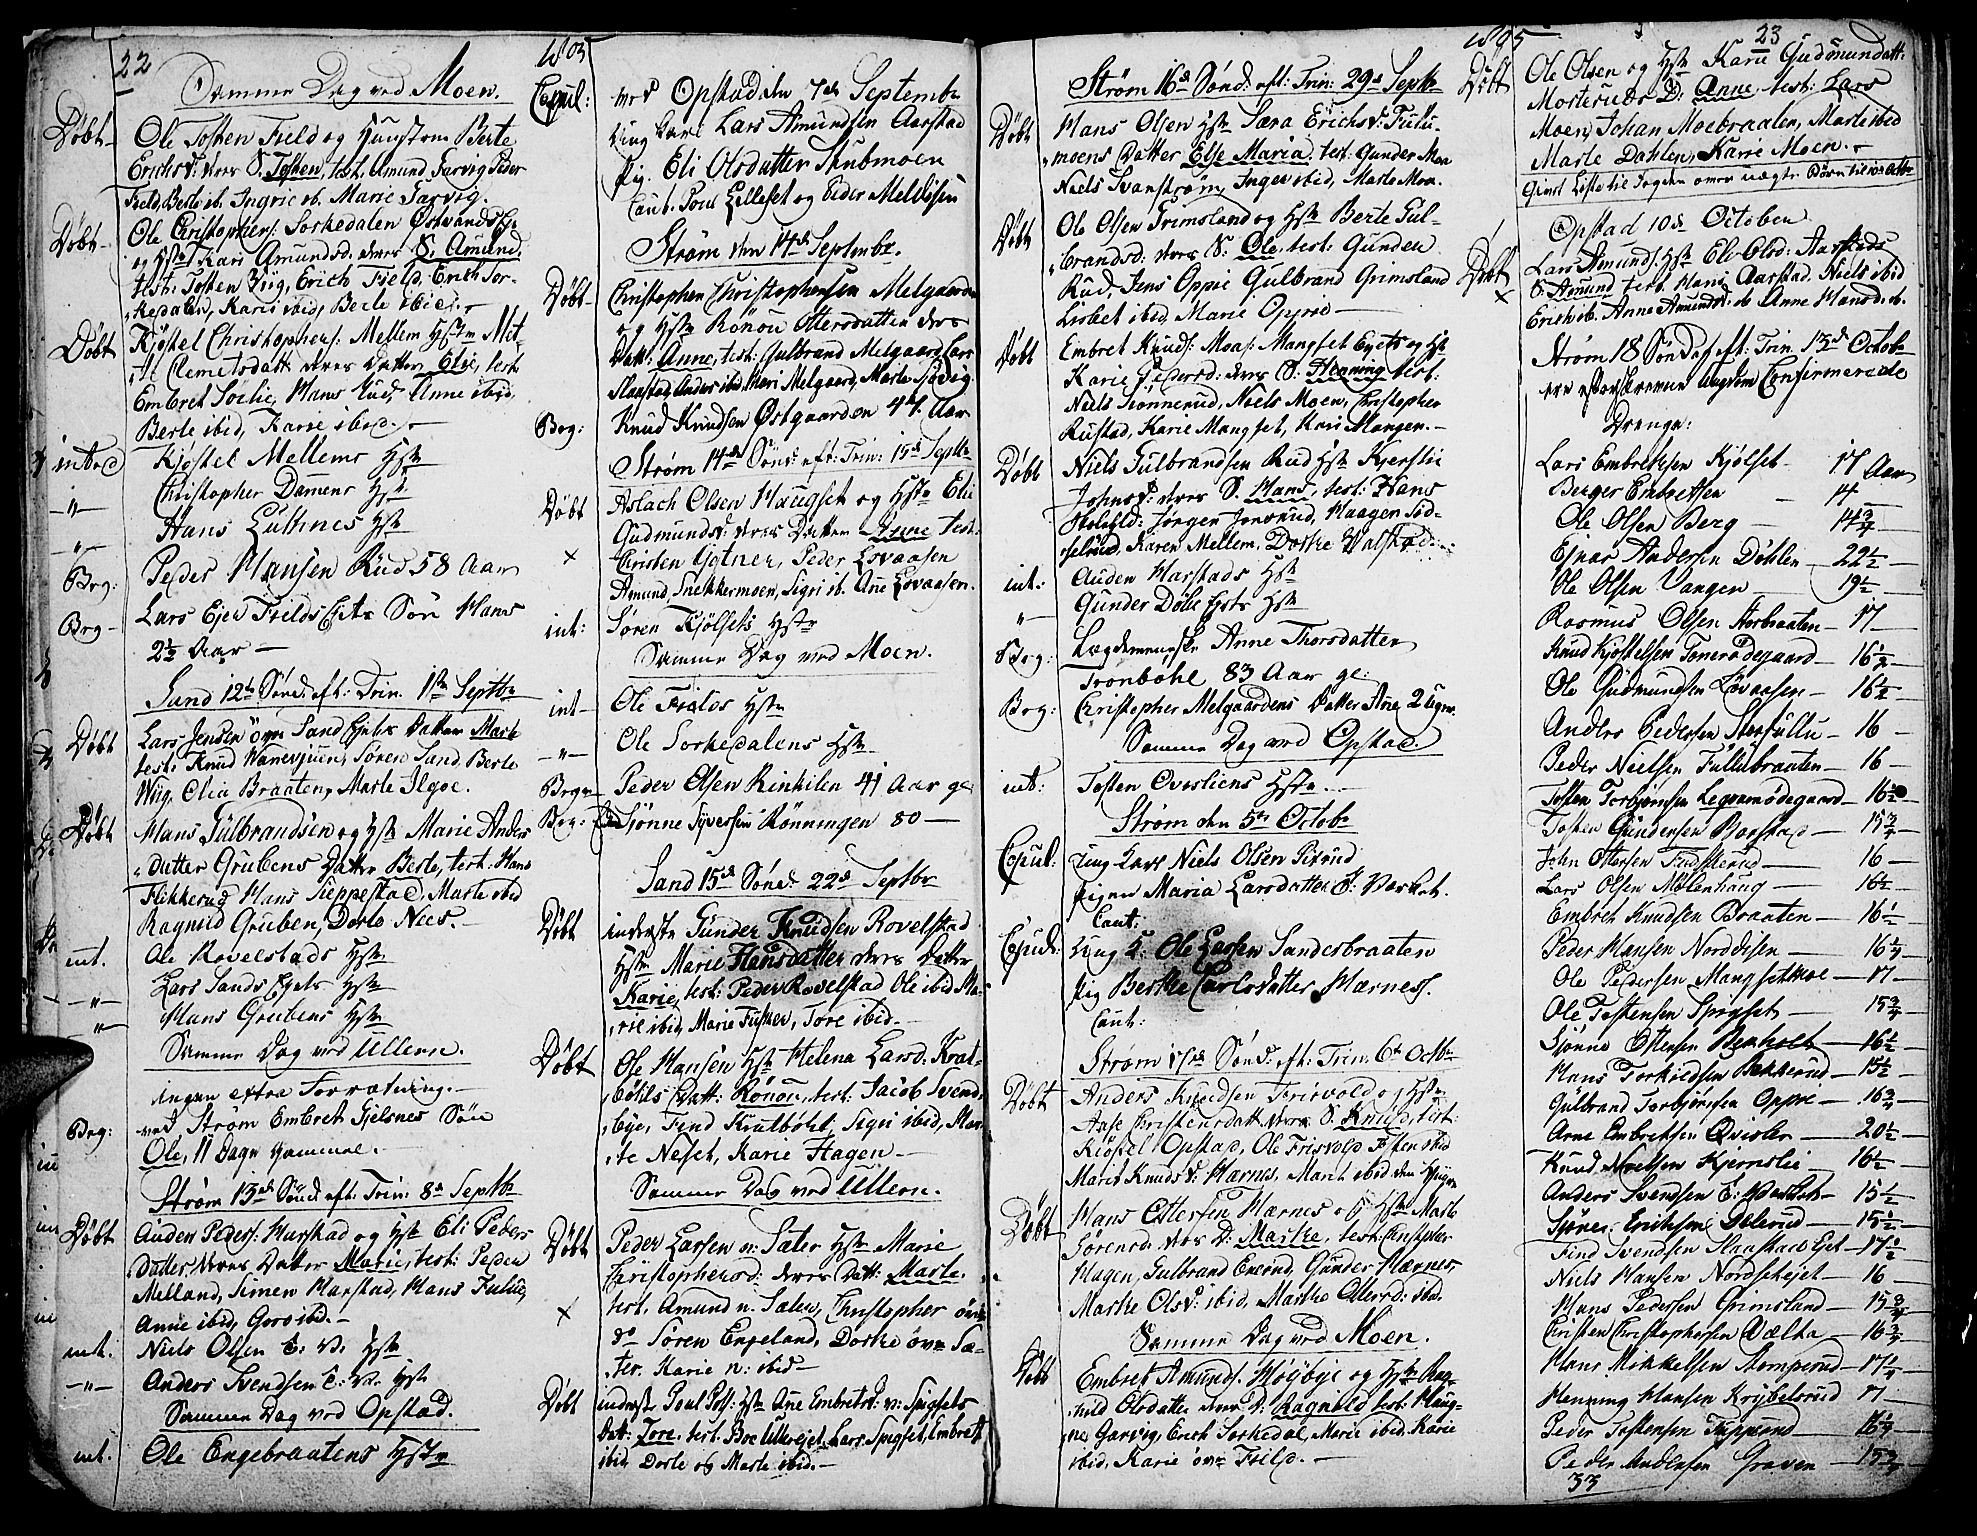 22
1805
Samme Dag ved Moen.
Døbt Ole Tosten Field og Hustrue Berte
Erichsd: deres S. Tosten, test. Amund Garvig Peder
Field, Berte ib. Ingrie ib. Marie Garvig.
Døbt Ole Christophers: Sorkedalen
og Hstr Kari Amundsd. deres S. Amund,
test: Tosten Erich Field, Erich Sor-
kedalen, Karie ibid, Berte ibid.
Døbt Kjøstel Christophers: Mellem Hstr
Clemetsdatt: deres Datter Elie, test.
Embret Sørlie, Hans Rud, Anne ibid,
Berte ibid, Karie ibid.
introd Kjøstel Mellems Hstr
-"- Christopher Damens Hstr
-"- Hans Hstr
Beg: Peder Hansen Rud 58 Aar
Beg Lars Ejer Fields Søn Hans
2½ Aar
Sand 12te Sønd: eft: Trin. 1ste Septbr
Døbt Lars Jensen øvre Sand Datter Marte
test: Knud Søren Sand, Berte
Wiig, Elia Braaten, Marte
Døbt Hans Gulbrandsen og Hstr Marie Anders
datter Grubens Datter Berte, test: Hans
Flikkerud Hans Seppestad, Marte ibid
Ragnild Gruben, Dorte Nees.
int. Ole Rovelstads Hstr
-"- Lars Sands Hstr
-"- Hans Grubens Hstr
Samme Dag ved Ullern.
ingen extra Forretning.
Beg: ved Strøm Embret Gjelsnes Søn
Ole, 11 Dage gammel.
Strøm 13de Sønd: eft: Trin. 8de Septbr
Døbt Auden Peders: Harstad og Hstr Eli Peders
datter, deres Datter Marie, test: Peder
Melland, Simen Harstad, Hans
Anne ibid, Goro ibid.
int. Niels Olsen E: V: Hstr
-"- Anders Svendsen E: V: Hstr
Samme Dag ved Opstad.
int. Ole Engebraatens Hstr
Copul: ved Opstad den 7de Septembr
Ung Karl Lars Amundsen Aarstad
Pig. Eli Olsdatter Stubmoen
Caut. Poul Lilleset og Peder
Strøm den 14de Septembr.
Døbt Christopher Christophersen Melgaarden
og Hstr Rønou Ottersdatter deres
Datt: Anne, test: Gulbrand Melgaard, Lars
Anders ibid, Mari Melgaard, Marte
Beg: Knud Knudsen Østgaarden 41. Aar
Strøm 14de Sønd: eft: Trin: 15de Septbr
Døbt Aslach Olsen Haugset og Hstr Elie
Gudmundsd: deres Datter test:
Christen Peder Lovaasen
Amund Snekkermoen, Sigri ib. Ane Lovaasen.
int: Søren Kjølsets Hstr
Samme Dag ved Moen.
int Ole Fields Hstr
-"- Ole Sorkedalens Hstr
Beg Peder Olsen Rinkilen 41 Aar g:
Beg: Sjønne Syversen Rønningen 80
Sand 15de Sønd: 22de Septbr
Døbt inderste Gunder Knudsen Rovelstad
Hstr Marie Hansdatter deres Datter
Karie, test: Peder Rovelstad Ole ibid Ma-
rie ibid, Marie Tore ibid.
Døbt Ole Hansen Hstr Helena Larsd: Krat-
bøls Datt: Rønou, test: Jacob Svend
bye, Find Kratbøhl, Sigri ibid, Mar-
te Neset, Karie Hagen
Samme Dag ved Ullern.
Døbt Peder Larsen n: Sæter Hstr Marie
Christophersd: deres Datt: Marte.
test. Amund n. Sæter, Christopher øvre
do Søren Engeland, Dorte øvre Sæ-
ter. Karie n: ibid
Døbt inderste Poul Hstr Ane Embretsd: n: Spigsets
Datt: Tore. test. Lars Spigset, Embret
ibid Dorte og Marte ibid.
1805
23
Strøm 16de Sønd: eft: Trin: 29de Septbr
Døbt Hans Olsen Hstr Sara Erichsd:
moens Datter Else Maria, test: Gunder Moe
Niels Svanstrøm, Inger ibid, Marte Moe.
Døbt Ole Olsen Grimsland og Hstr Berte Gul-
brandsd: deres S: Ole. test: Gunder
Rud, Jens Oppie Gulbrand Grimsland
Lisbet ibid, Marie Oppie
Døbt Embret Knuds: Mangset Ejets og Hstr
Karie Pedersd: deres S: Henning test:
Niels Niels Moen, Christopher
Rustad, Karie Mangset, Kari Mangen.
Døbt Niels Gulbrandsen Rud Hstr Kjerstie
Johnsd: deres S. Hans, test: Hans
Jørgen Haagen
Karen Mellem, Dorthe
int: Auden Harstads Hstr
-"- Gunder Døhl Ejets Hstr
Beg: Lægdemenneske Anne Thorsdatter
Trønbøhl 83 Aar g:
Beg: Christopher Melgaardens Datter Ane 2 Uger
Samme Dag ved Opstad.
int: Tosten Overliens Hstr.
Strøm den 5te Octobr
Copul: Ung Karl Niels Olsen
Pigen Maria Larsdatter E:
Caut:
Copul: Ung K: Ole Larsen Sandersbraaten
Pig Berthe Carlsdatter Hærnes.
Caut:
Strøm 17de Sønd: eft: Trin. 6te Octbr
Døbt Anders Knudsen og Hstr
Aase Christensdatt: deres S. Knud, test:
Kjøstel Opstad, Ole Tosten ibid
Marit Knudsd: Hærnes, Marit ibid den
Døbt Hans Ottersen Hærnes og Hstr Marte
Sørensd: deres D: Marthe, test: Christopher
Hagen, Gulbrand Gunder Hærnes
Marthe Olsd: ibid, Marthe Ottersd: ibid.
Samme Dag ved Moen.
Døbt Embret Amunds. og Hstr Rag-
nild Olsdatter deres D: Ragnild test: Haag-
ne Garvig, Erich Sorkedal, Marie ibid. Karie
ibid, Karie øvre Field.
Døbt Ole Olsen og Hstr Karie Gudmundsdatt:
D: Anne, test: Lars
Moen, Johan Moebraaten, Marte ibid
Marte Dahlen, Karie Moen.
Givet Liste til Fogden over uægte Børn til 10de Octbr
Opstad 10de October
Døbt Lars Amunds: Hstr Eli Olsd: Aarstads
S: Amund test. Hans Aarstad. Niels ibid
Erich ib. Anne Amundsd: ib Anne Hansd. ib.
Strøm 18 Søndag eft: Trin. 13de Octobr
ere efterskrevne Ungdom Confirmerede
Drenge:
Lars Embretsen Kjølset 17 Aar
Berger Embretsen 14
Ole Olsen Berg 14¾
Ejnar Andersen Døhlen 22½
Ole Olsen Vangen 19½
Rasmus Olsen 17
Knud Kjøstelsen Tonerødegaard 16½
Ole Gudmundsen Lovaasen 16½
Anders Pedersen 16
Peder Nielsen 16
Tosten Torbjørnsen 16½
Tosten Gundersen 15¾
John Ottersen 16
Lars Olsen Mølenhaug 16½
Embret Knudsen Braaten 16½
Peder Hansen Norddisen 16¼
Ole Pedersen 17
Ole Tostensen Spigset 15¾
Sjønne Ottersen 16½
Hans Torkildsen Bekkerud 15½
Gulbrand Torbjørnsen Oppie 16¾
Arne Embretsen Qvisler 20½
Knud Nielsen Kjernslie 16½
Anders Svendsen E: 15½
Sjøner Ericksen 15½
Find Svendsen 17½
Niels Hansen 16
Hans Pedersen Grimsland 15¾
Christen Christophersen Vælta 16¾
Hans Mikkelsen 17¼
Henning Hansen 17
Peder Tostensen 16¼
Peder Andersen Graven 15¾
33